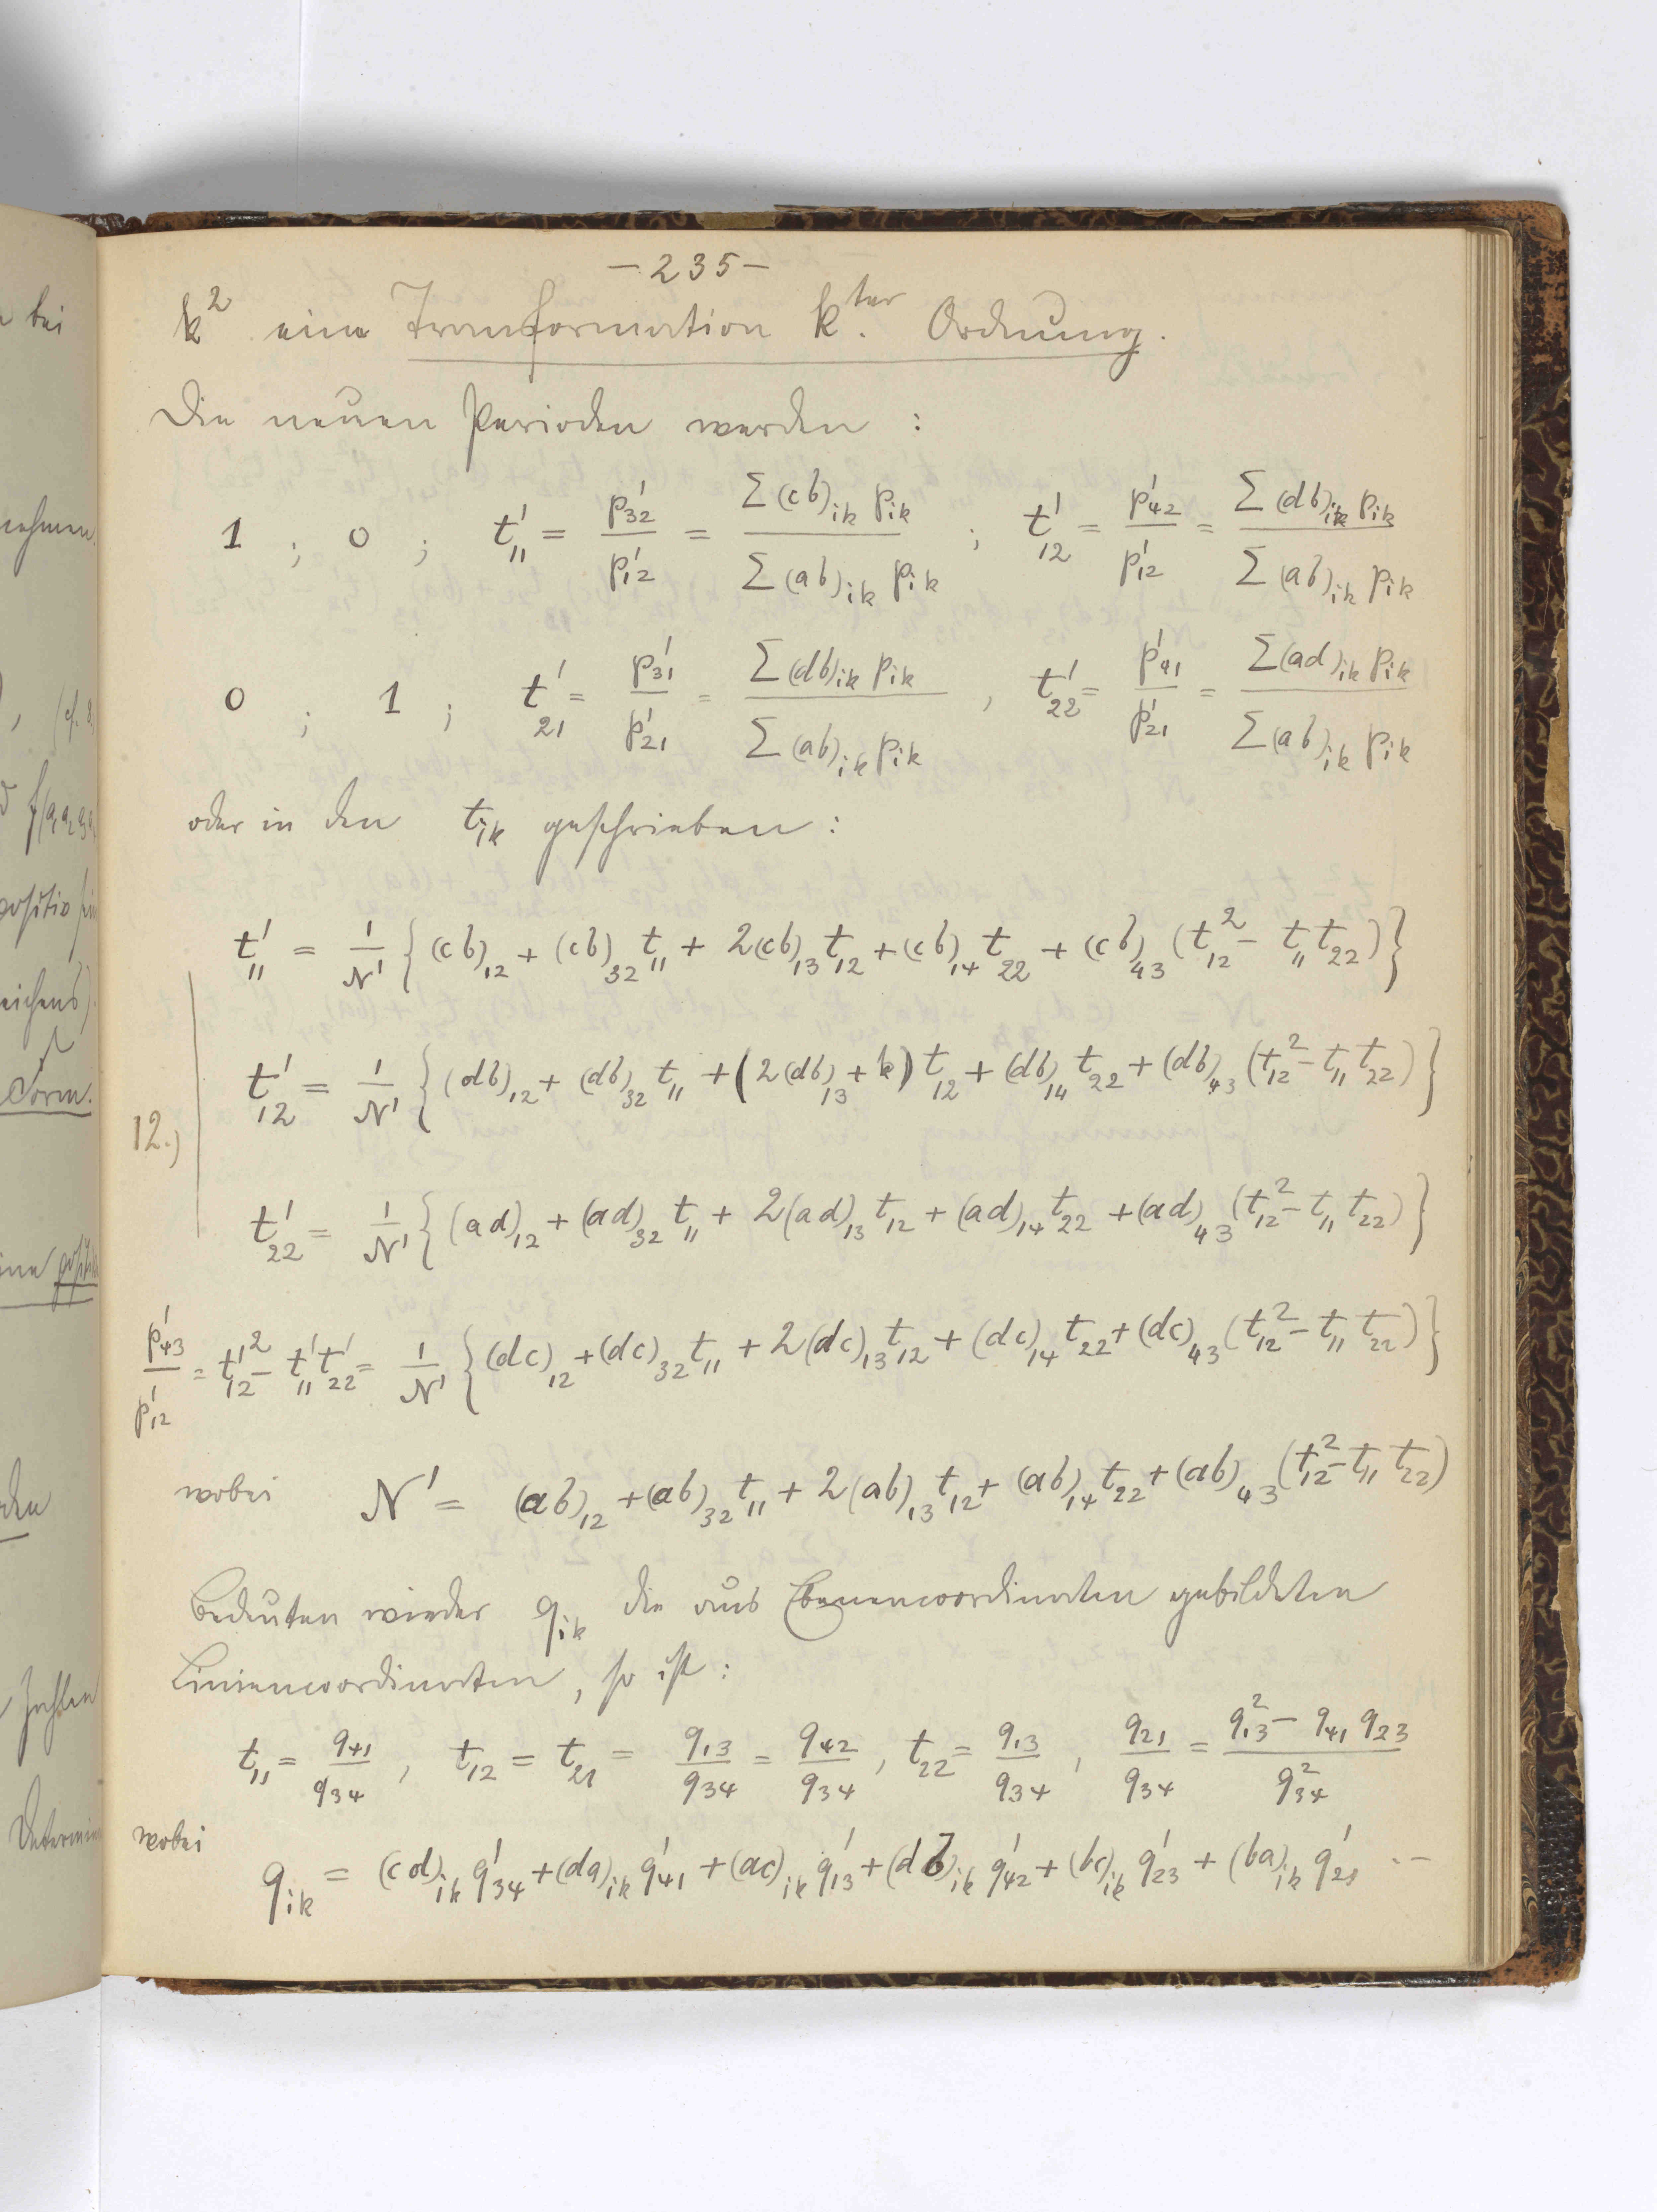 — 235 —
k² eine Transformation k^ter Ordnung.
Die neuen Perioden werden :
1 ; 0 ; t'₁₁ = p'₃₂/p'₁₂ = Σ(cb)ᵢₖ pᵢₖ / Σ(ab)ᵢₖ pᵢₖ ; t'₁₂ = p'₄₂/p'₁₂ = Σ(db)ᵢₖ pᵢₖ / Σ(ab)ᵢₖ pᵢₖ
0 ; 1 ; t'₂₁ = p'₃₁/p'₂₁ = Σ(db)ᵢₖ pᵢₖ / Σ(ab)ᵢₖ pᵢₖ , t'₂₂ = p'₄₁/p'₂₁ = Σ(ad)ᵢₖ pᵢₖ / Σ(ab)ᵢₖ pᵢₖ
oder in den tᵢₖ geschrieben :
t'₁₁ = 1/N' {(cb)₁₂ + (cb)₃₂ t₁₁ + 2(cb)₁₃ t₁₂ + (cb)₁₄ t₂₂ + (cb)₄₃ (t₁₂² - t₁₁ t₂₂)}
t'₁₂ = 1/N' {(db)₁₂ + (db)₃₂ t₁₁ + (2(db)₁₃ + k) t₁₂ + (db)₁₄ t₂₂ + (db)₄₃ (t₁₂² - t₁₁ t₂₂)}
12.)
t'₂₂ = 1/N' {(ad)₁₂ + (ad)₃₂ t₁₁ + 2(ad)₁₃ t₁₂ + (ad)₁₄ t₂₂ + (ad)₄₃ (t₁₂² - t₁₁ t₂₂)}
p'₄₃/p'₁₂ = t'₁₂² - t'₁₁ t'₂₂ = 1/N' {(dc)₁₂ + (dc)₃₂ t₁₁ + 2(dc)₁₃ t₁₂ + (dc)₁₄ t₂₂ + (dc)₄₃ (t₁₂² - t₁₁ t₂₂)}
wobei N' = (ab)₁₂ + (ab)₃₂ t₁₁ + 2(ab)₁₃ t₁₂ + (ab)₁₄ t₂₂ + (ab)₄₃ (t₁₂² - t₁₁ t₂₂)
Bedeuten wieder qᵢₖ die aus Ebenencoordinaten gebildeten
Liniencoordinaten, so ist :
t₁₁ = q₄₁/q₃₄ , t₁₂ = t₂₁ = q₁₃/q₃₄ = q₄₂/q₃₄ , t₂₂ = q₁₃/q₃₄ , q₂₁/q₃₄ = (q₁₃² - q₄₁ q₂₃)/q₃₄²
wobei
qᵢₖ = (cd)ᵢₖ q'₃₄ + (da)ᵢₖ q'₄₁ + (ac)ᵢₖ q'₁₃ + (db)ᵢₖ q'₄₂ + (bc)ᵢₖ q'₂₃ + (ba)ᵢₖ q'₂₁ ..